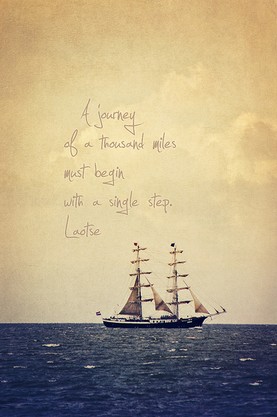 A journey
of a thousand miles
must begin
with a single step.
Laotse